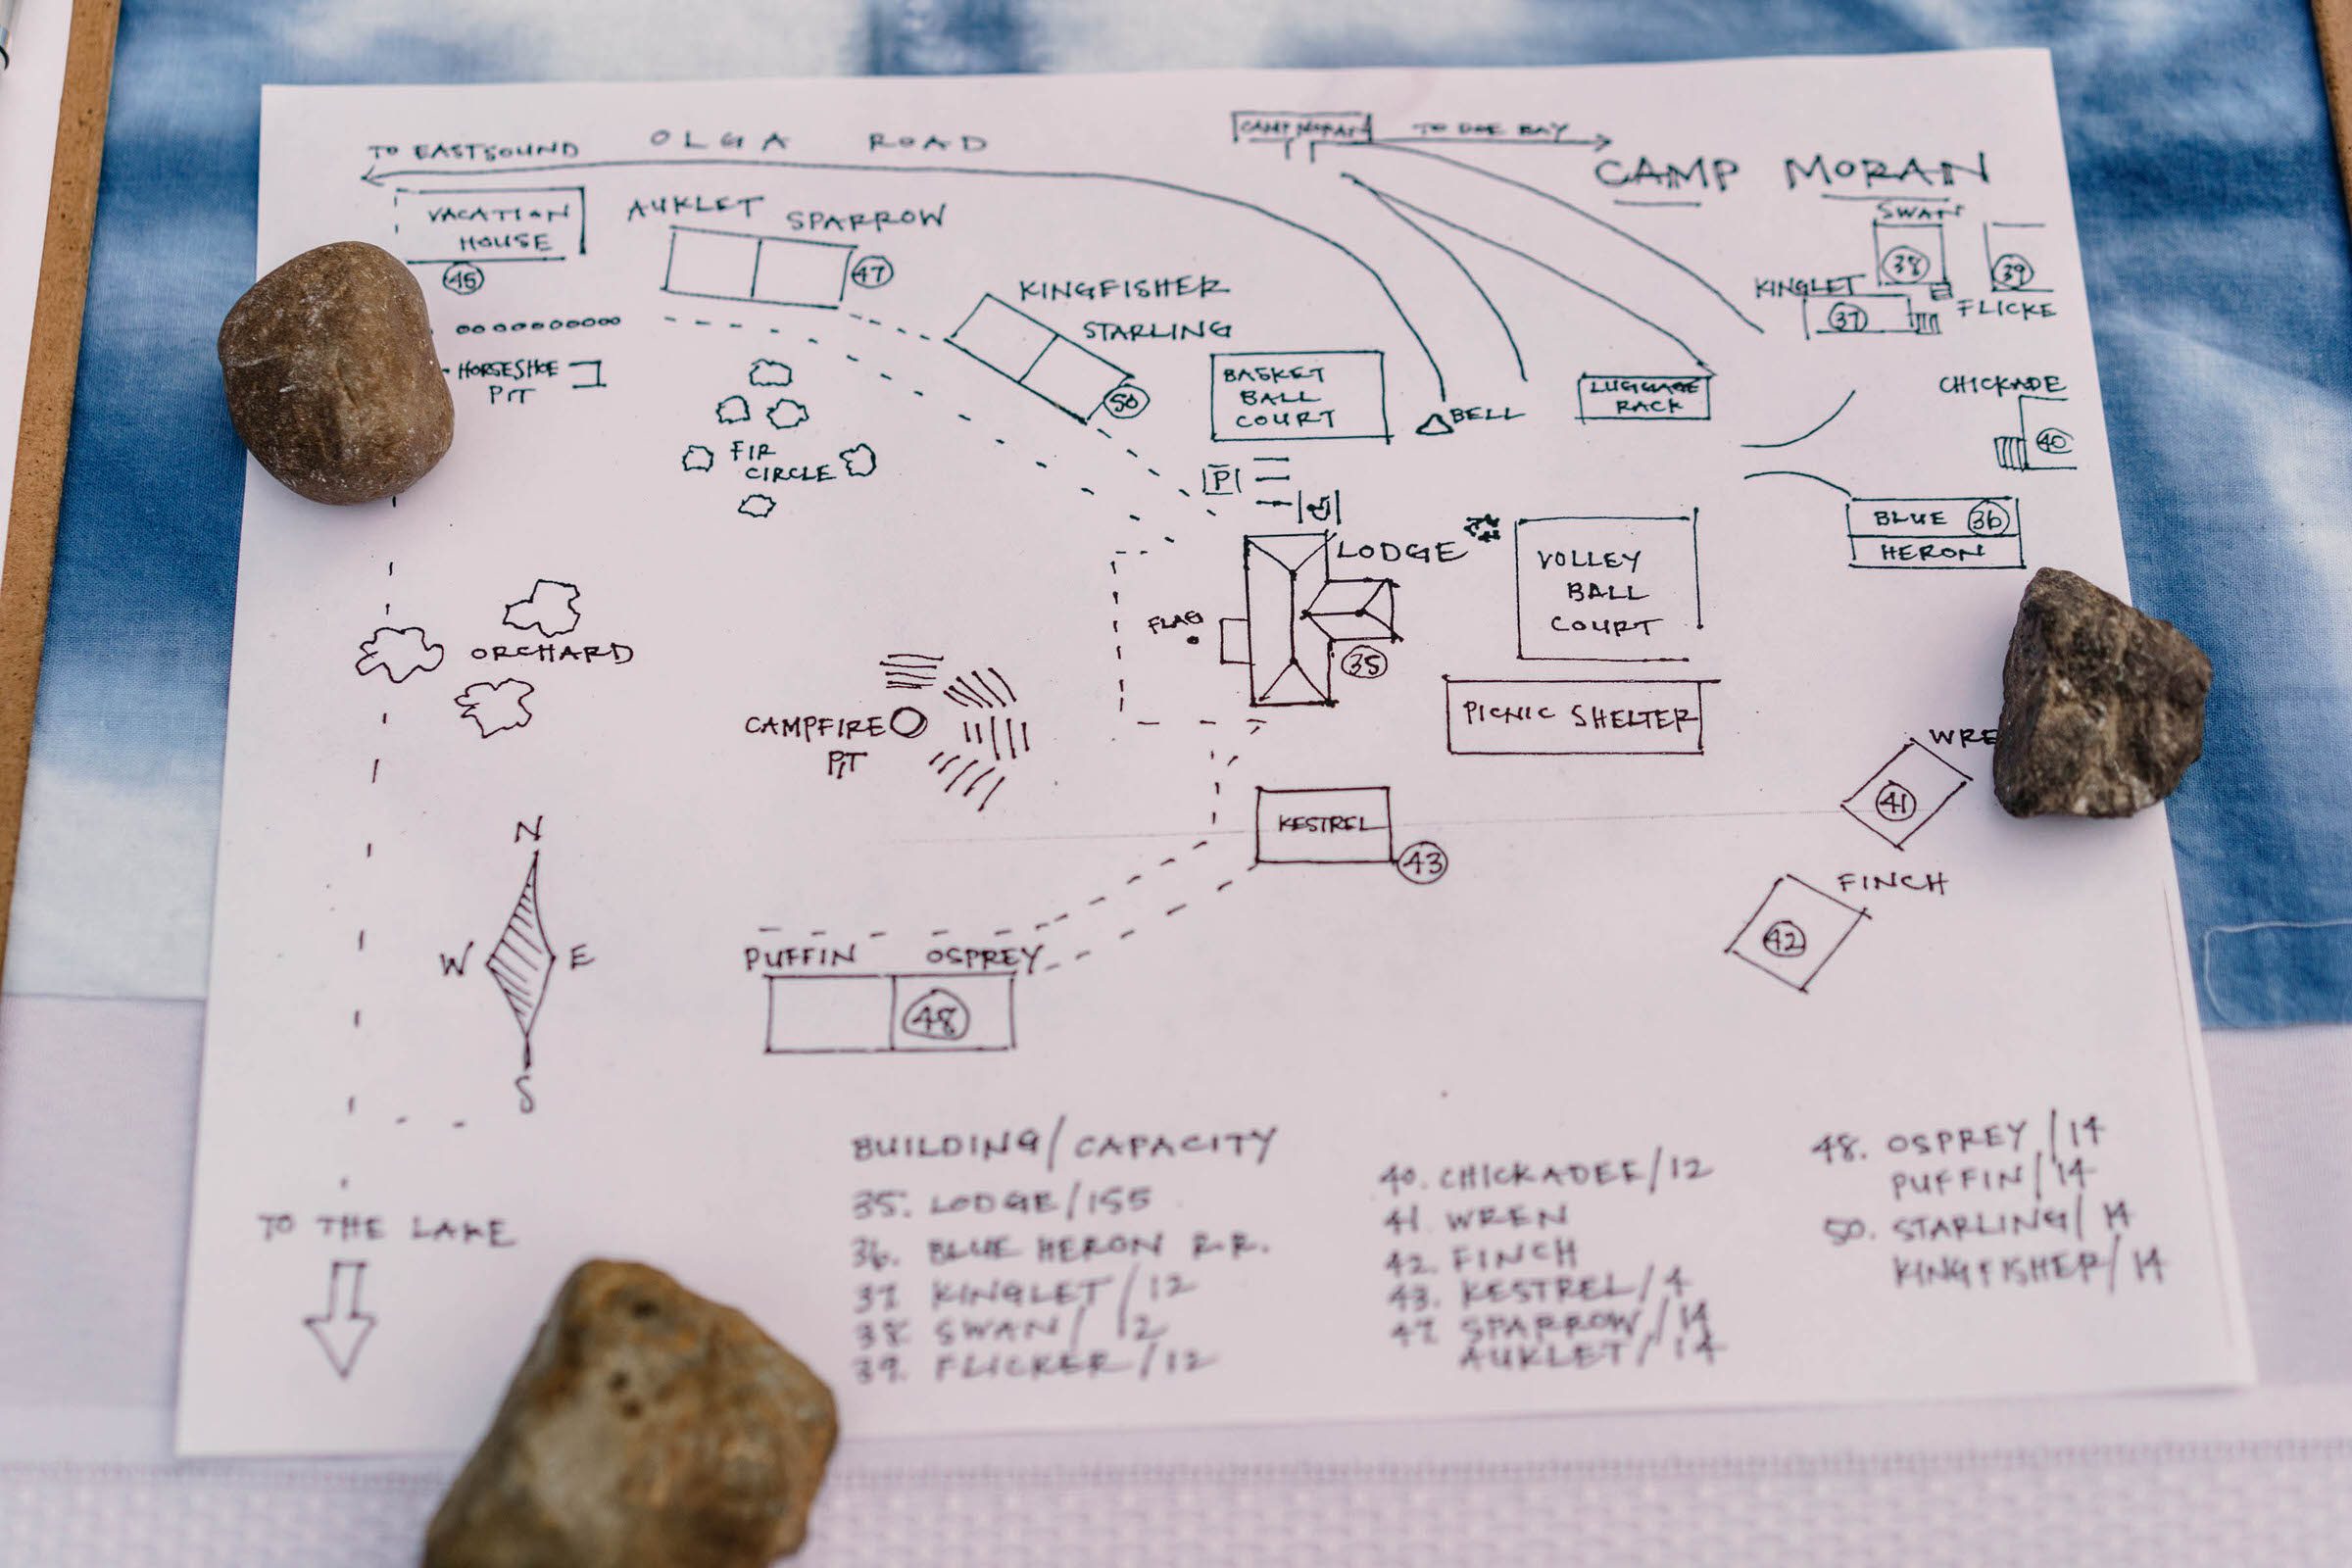 TO EASTSOUND
OLGA ROAD
CAMP MORAN
TO DOE BAY
CAMP MORAN
VACATION
HOUSE
45
AUKLET
SPARROW
47
KINGFISHER
STARLING
50
SWAN
38
39
FLICKE
KINGLET
37
HORSESHOE
PIT
FIR
CIRCLE
BASKET
BALL
COURT
BELL
LUGGAGE
RACK
CHICKADE
40
P
BLUE 36
HERON
LODGE
FLAG
35
VOLLEY
BALL
COURT
ORCHARD
CAMPFIRE
PIT
PICNIC SHELTER
WRE
41
KESTREL
43
FINCH
42
N
W E
S
PUFFIN OSPREY
48
TO THE LAKE
BUILDING/CAPACITY
35. LODGE/155
36. BLUE HERON R.R.
37. KINGLET/12
38. SWAN/12
39. FLICKER/12
40. CHICKADEE/12
41. WREN
42. FINCH
43. KESTREL/4
47. SPARROW/14
AUKLET/14
48. OSPREY/14
PUFFIN/14
50. STARLING/14
KINGFISHER/14